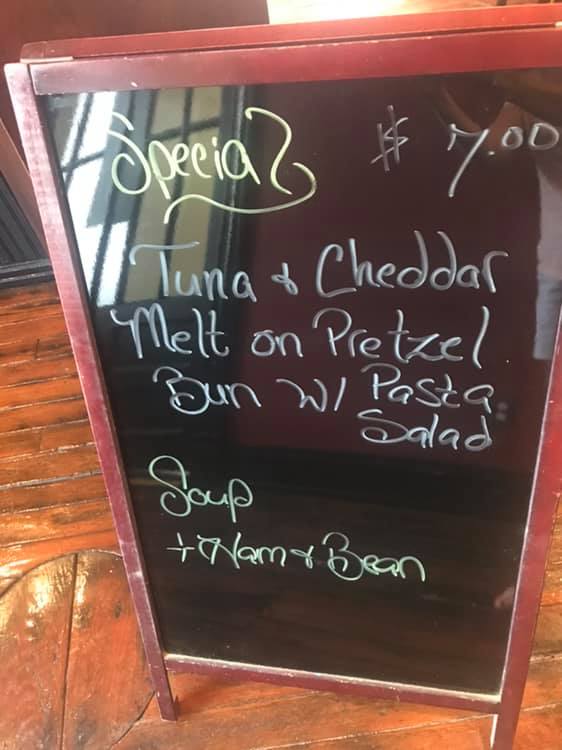 Special $ 7.00
Tuna & Cheddar
Melt on Pretzel
Bun w/ Pasta
Salad
Soup
+ Ham & Bean